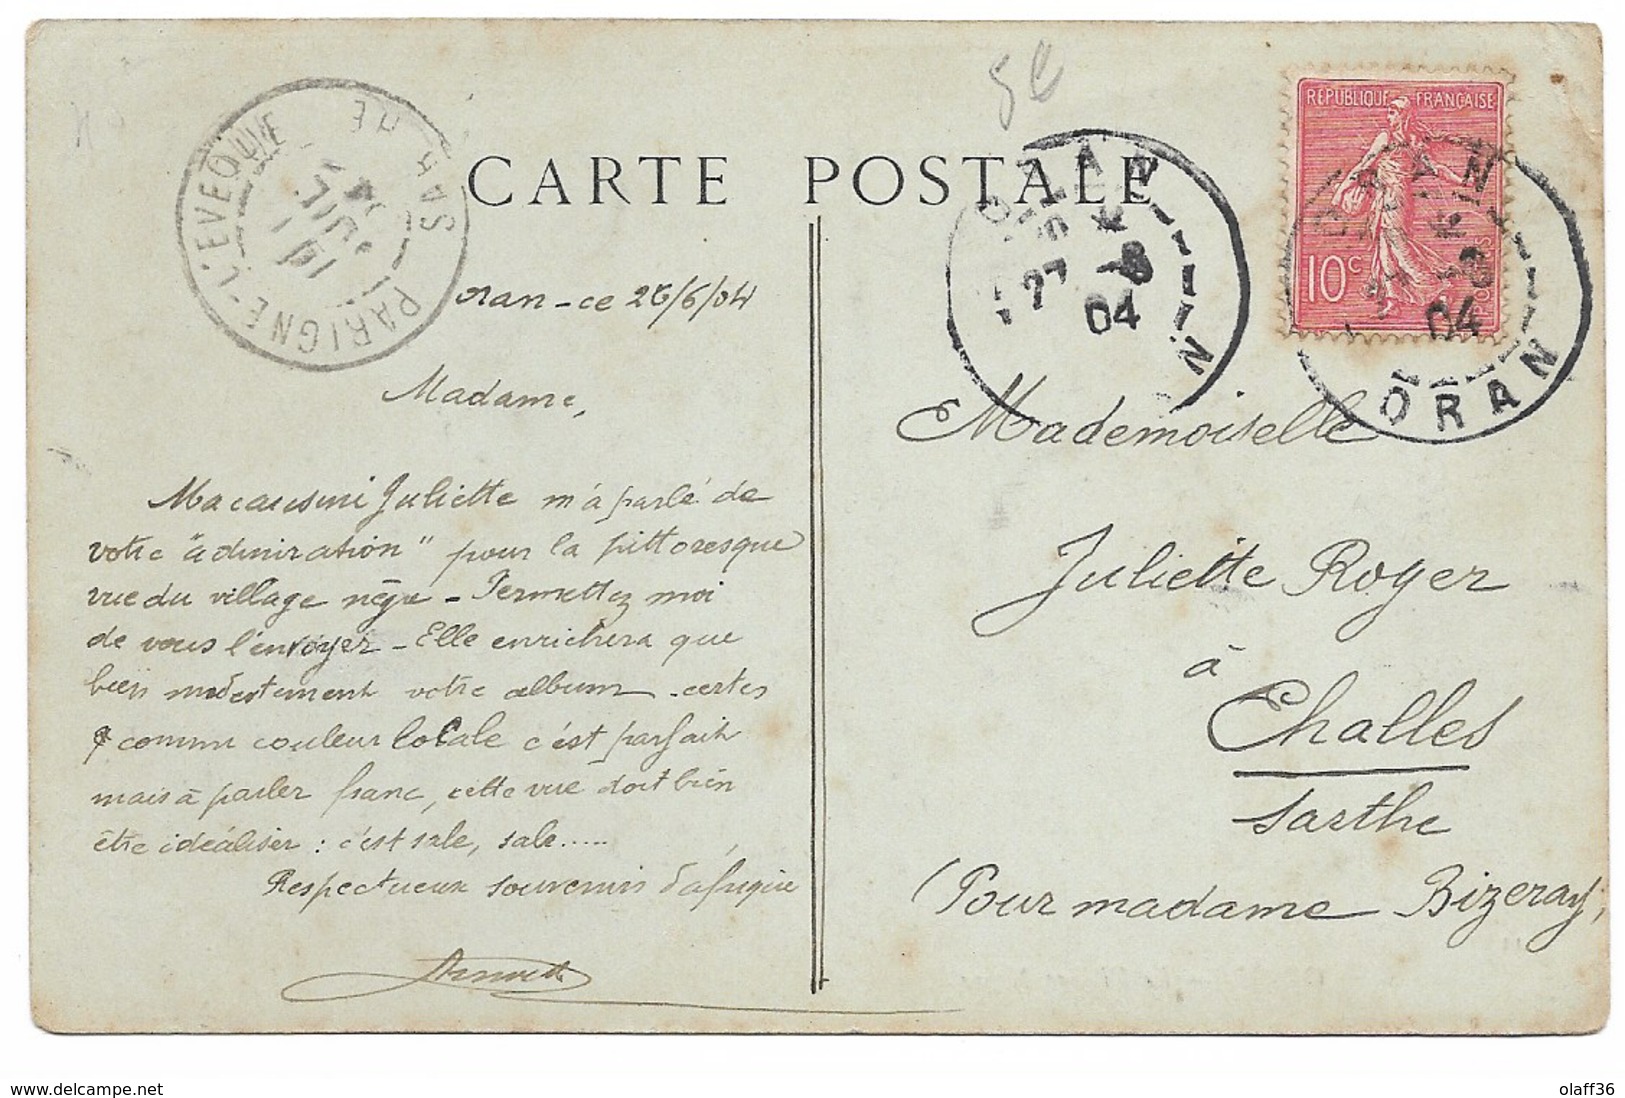 5e
CARTE POSTALE
REPUBLIQUE FRANÇAISE
10c
POSTES
PARIGNE-L'EVEQUE
SARTHE
1 JUIL.
04
ORAN
ORAN
27
04
ORAN
ORAN
04
Oran - ce 26/6/04
Madame,
Ma cousine Juliette m'a parlé de
votre "admiration" pour la pittoresque
vue du village nègre - Permettez moi
de vous l'envoyer - Elle enrichera que
bien modestement votre album - certes
comme couleur locale c'est parfait
mais à parler franc, cette vue doit bien
être idéaliser : c'est sale, sale.....
Respectueux souvenirs d'afrique
Mademoiselle
Juliette Royer
à
Challes
Sarthe
(Pour madame Bizeray,
www.delcampe.net
olaff36